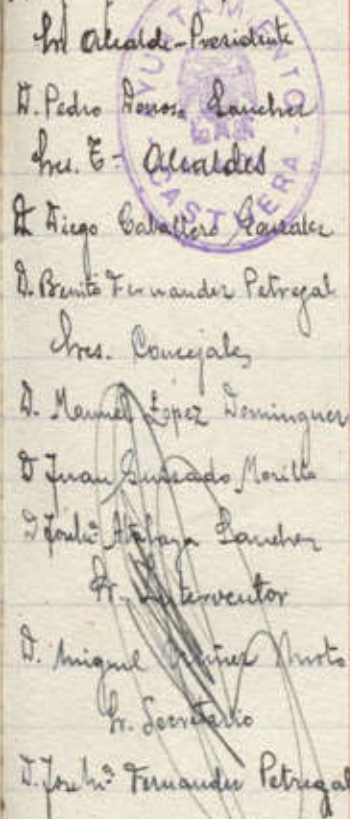 Sr Alcalde-Presidente
D. Pedro Donoso Sanchez
Sres. T- Alcaldes
D. Diego Caballero Gonzalez
D. Benito Fernandez Petregal
Sres. Concejales
D. Manuel Lopez Dominguez
D Juan Morillo
D Atalaya Sanchez
Sr. Interventor
D. Miguel
Sr. Secretario
D. Fernandez Petregal
AYUNTAMIENTO
CASTUERA